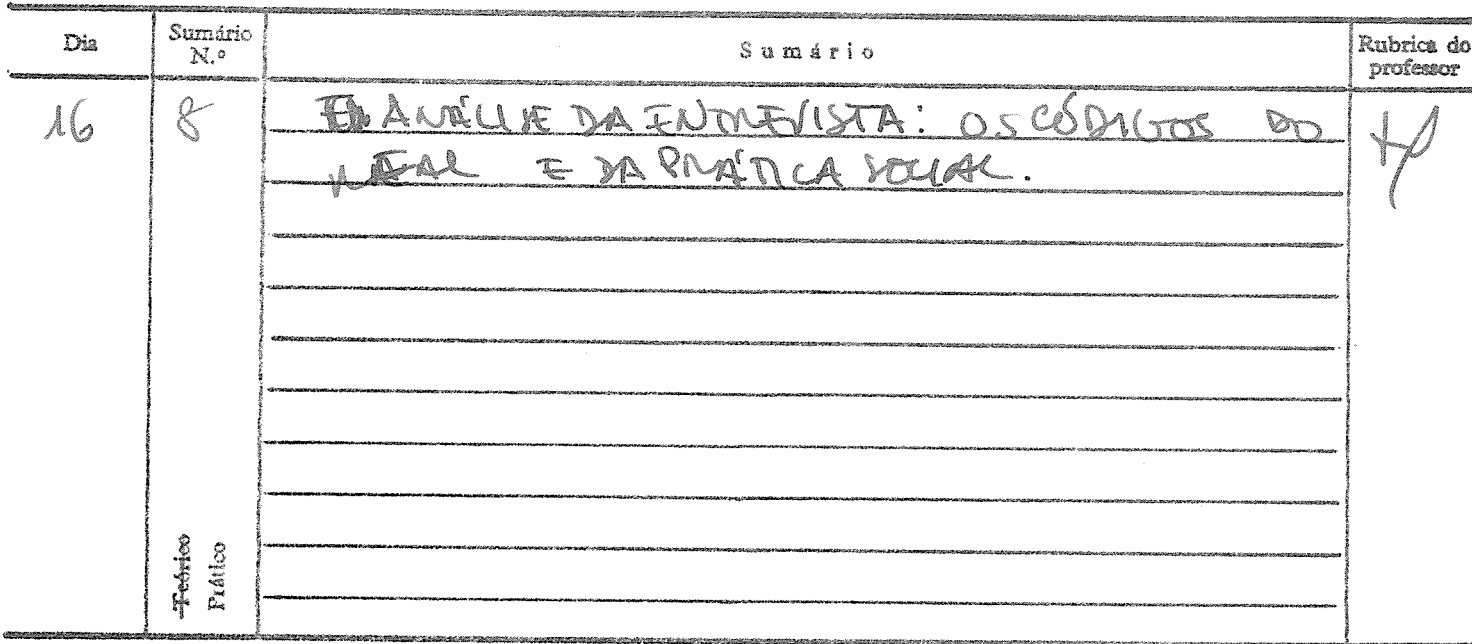 Dia
Sumário N.º
Sumário
Rubrica do professor
16
8
ANÁLISE DA ENTREVISTA: OS CÓDIGOS DO
REAL E DA PRÁTICA SOCIAL.
Teórico
Prático